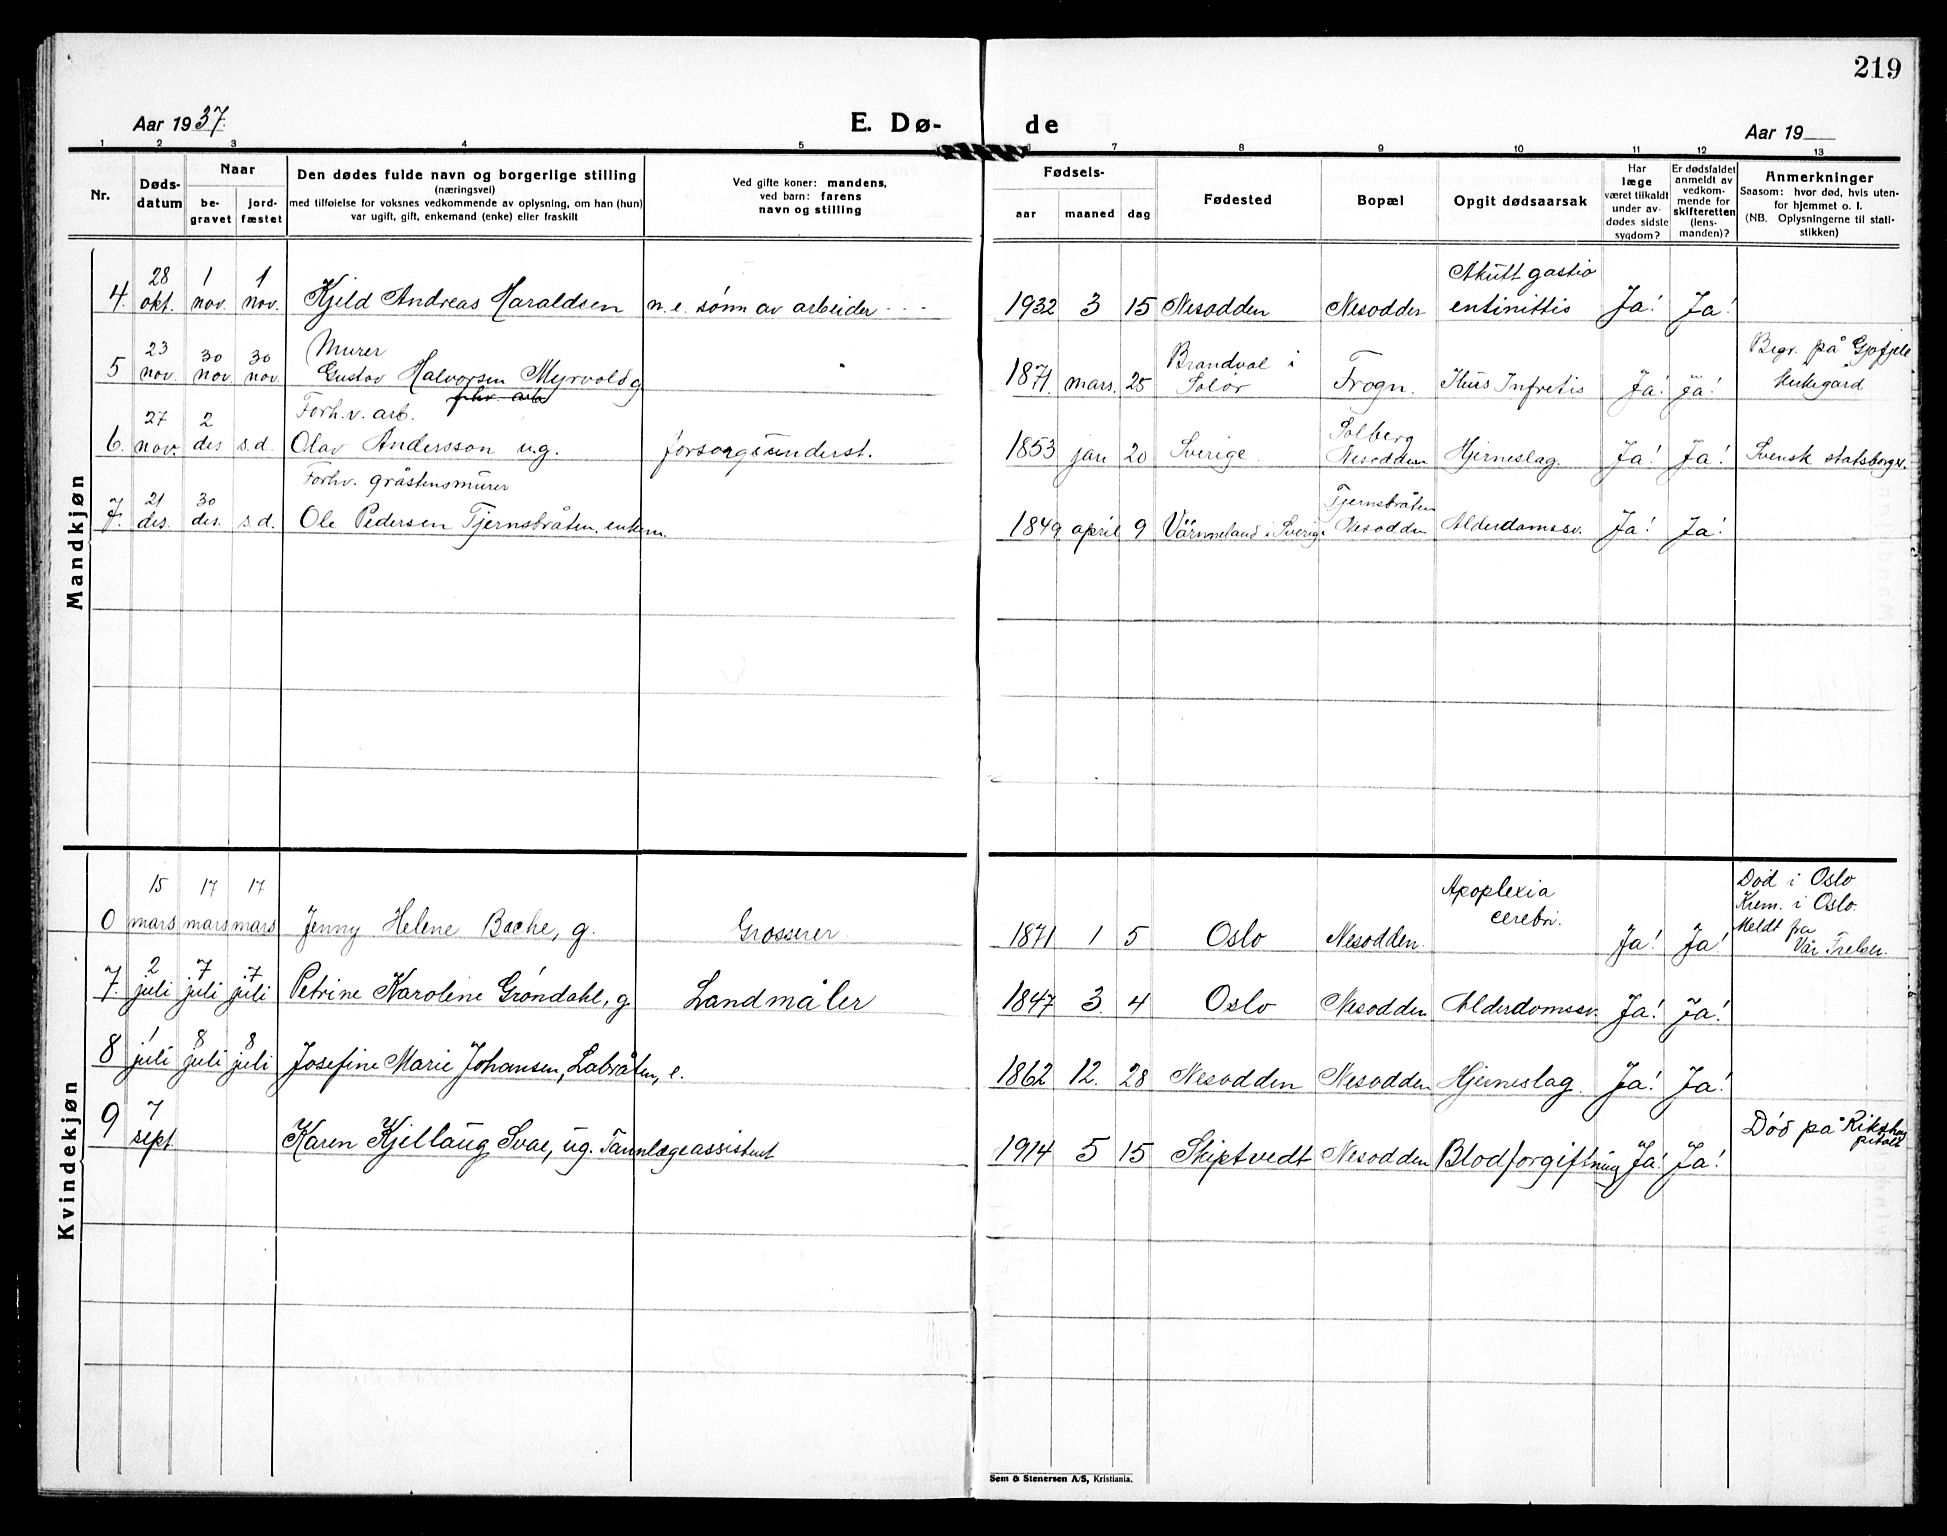 219
Aar 1937.
E. Dø-
de
Aar 19
1 2 3 4 5 6 7 8 9 10 11 12 13
Nr. Døds-datum Naar be-gravet jord-fæstet
Den dødes fulde navn og borgerlige stilling
(næringsvei)
med tilføielse for voksnes vedkommende av oplysning, om han (hun)
var ugift, gift, enkemand (enke) eller fraskilt
Ved gifte koner: mandens,
ved barn: farens
navn og stilling
Fødsels-
aar maaned dag
Fødested Bopæl Opgit dødsaarsak
Har læge været tilkaldt under av-dødes sidste sygdom?
Er dødsfaldet anmeldt av vedkom-mende for skifteretten (lens-manden)?
Anmerkninger
Saasom: hvor død, hvis uten-
for hjemmet o. l.
(NB. Oplysningerne til stati-
stikken)
Mandkjøn
4. 28 okt. 1 nov. 1 nov. Kjeld Andreas Haraldsen n.e. sønn av arbeider 1932 3 15 Nesodden Nesodden Akutt gastio entinittis Ja! Ja!
5 23 nov. 30 nov. 30 nov. Murer Gustav Halvorsen Myrvold g 1871 mars. 25 Brandval i Solør Frogn. Ihus Infretis Ja! Ja! Begr. på Gjøfjell kirkegård
forhv. arb.
6. 27 nov. 2 des s.d. Forh.v. arb. Olav Andersson ug. forsorgsunderst. 1853 jan 20 Sverige. Solberg Nesodden Hjerneslag. Ja! Ja! Svensk statsborger.
7. 21 des. 30 des. s.d. Forhv. gråstensmurer Ole Pedersen Tjernsbråten, enkem. 1849 april 9 Värmeland i Sverige Tjernsbråten Nesodden Alderdomssv. Ja! Ja!
Kvindekjøn
0 15 mars 17 mars 17 mars Jenny Helene Bache, g. Grosserer 1871 1 5 Oslo Nesodden. Apoplexia cerebri. Ja! Ja! Død i Oslo Krem. i Oslo. Meldt fra Vår Frelser.
7. 2 juli 7 juli 7 juli Petrine Karoline Gröndahl, g. Landmåler 1847 3. 4 Oslo Nesodden Alderdomssv. Ja! Ja!
8 1 juli 8 juli 8 juli Josefine Marie Johansen, Labråten, e. 1862 12. 28 Nesodden Nesodden Hjerneslag. Ja! Ja!
9 7 sept. Karen Kjellaug Svae, ug. Tannlægeassistent 1914 5 15 Skiptvedt Nesodden Blodforgiftning Ja! Ja! Død på Rikshospitalet
Sem & Stenersen A/S, Kristiania.